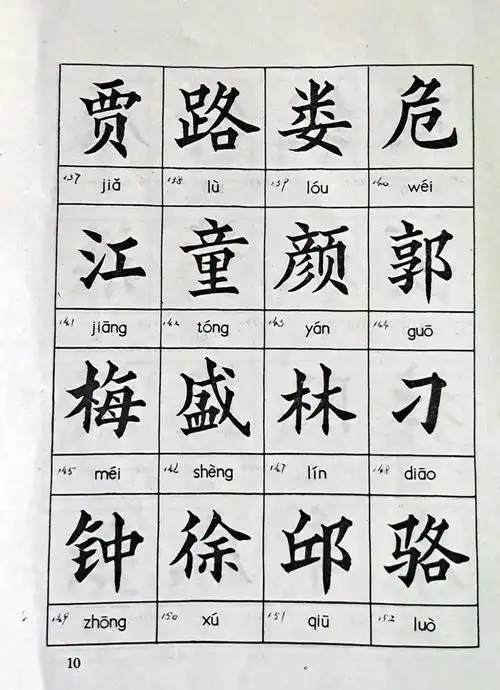 贾 路 娄 危
137 jiǎ 138 lù 139 lóu 140 wéi
江 童 颜 郭
141 jiāng 142 tóng 143 yán 144 guō
梅 盛 林 刁
145 méi 146 shèng 147 lín 148 diāo
钟 徐 邱 骆
149 zhōng 150 xú 151 qiū 152 luò
10